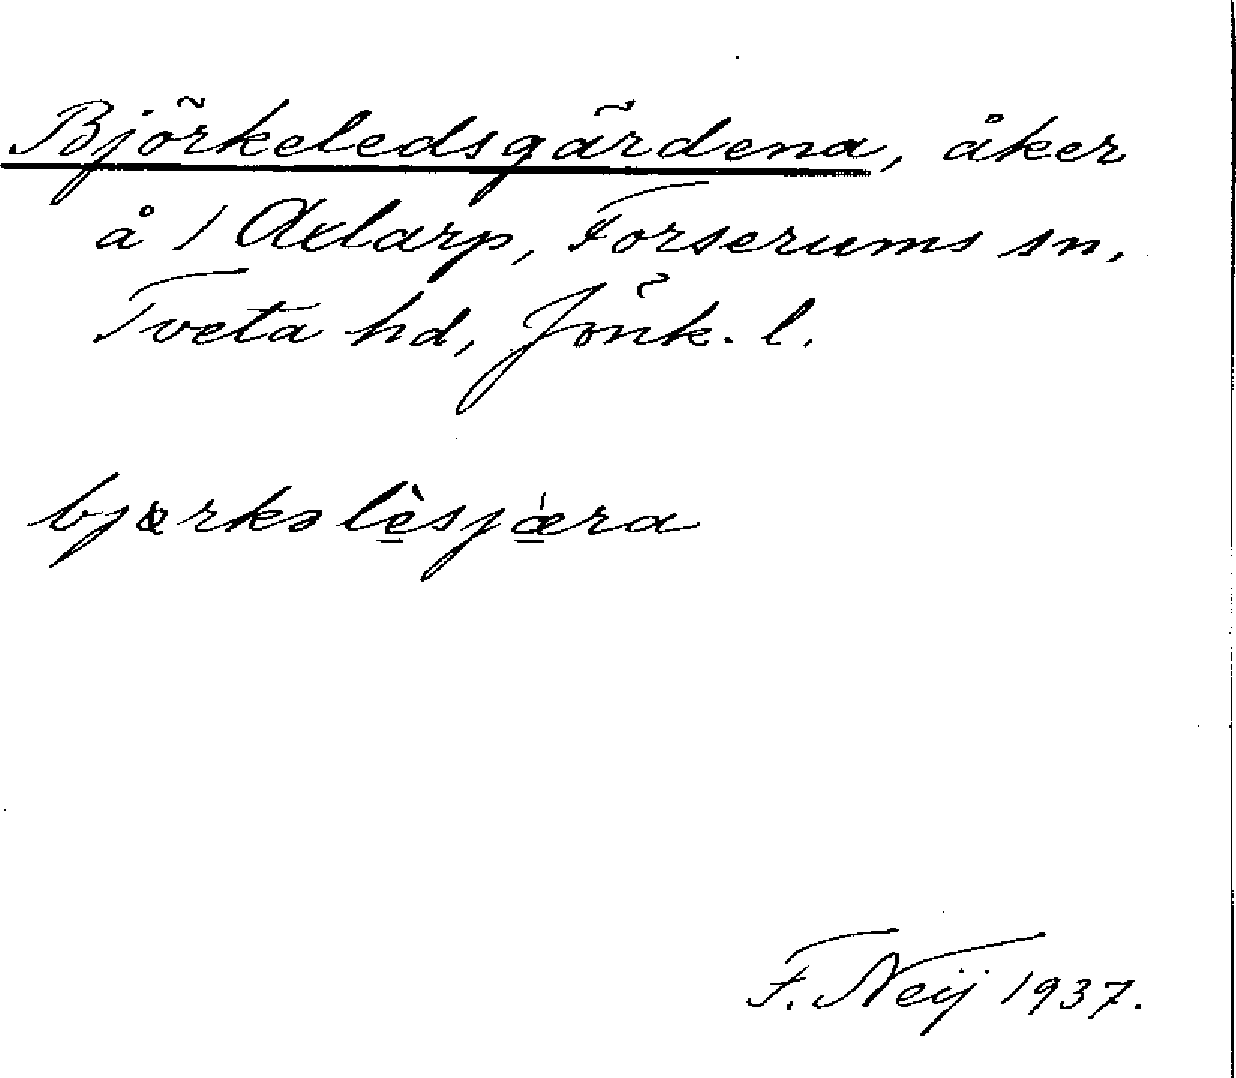 Björkeledsgärdena, åker
å 1 Axlarp, Forserums sn.
Tveta hd, Jönk. l.
bjærkəlèsjǽra
F. Neij 1937.